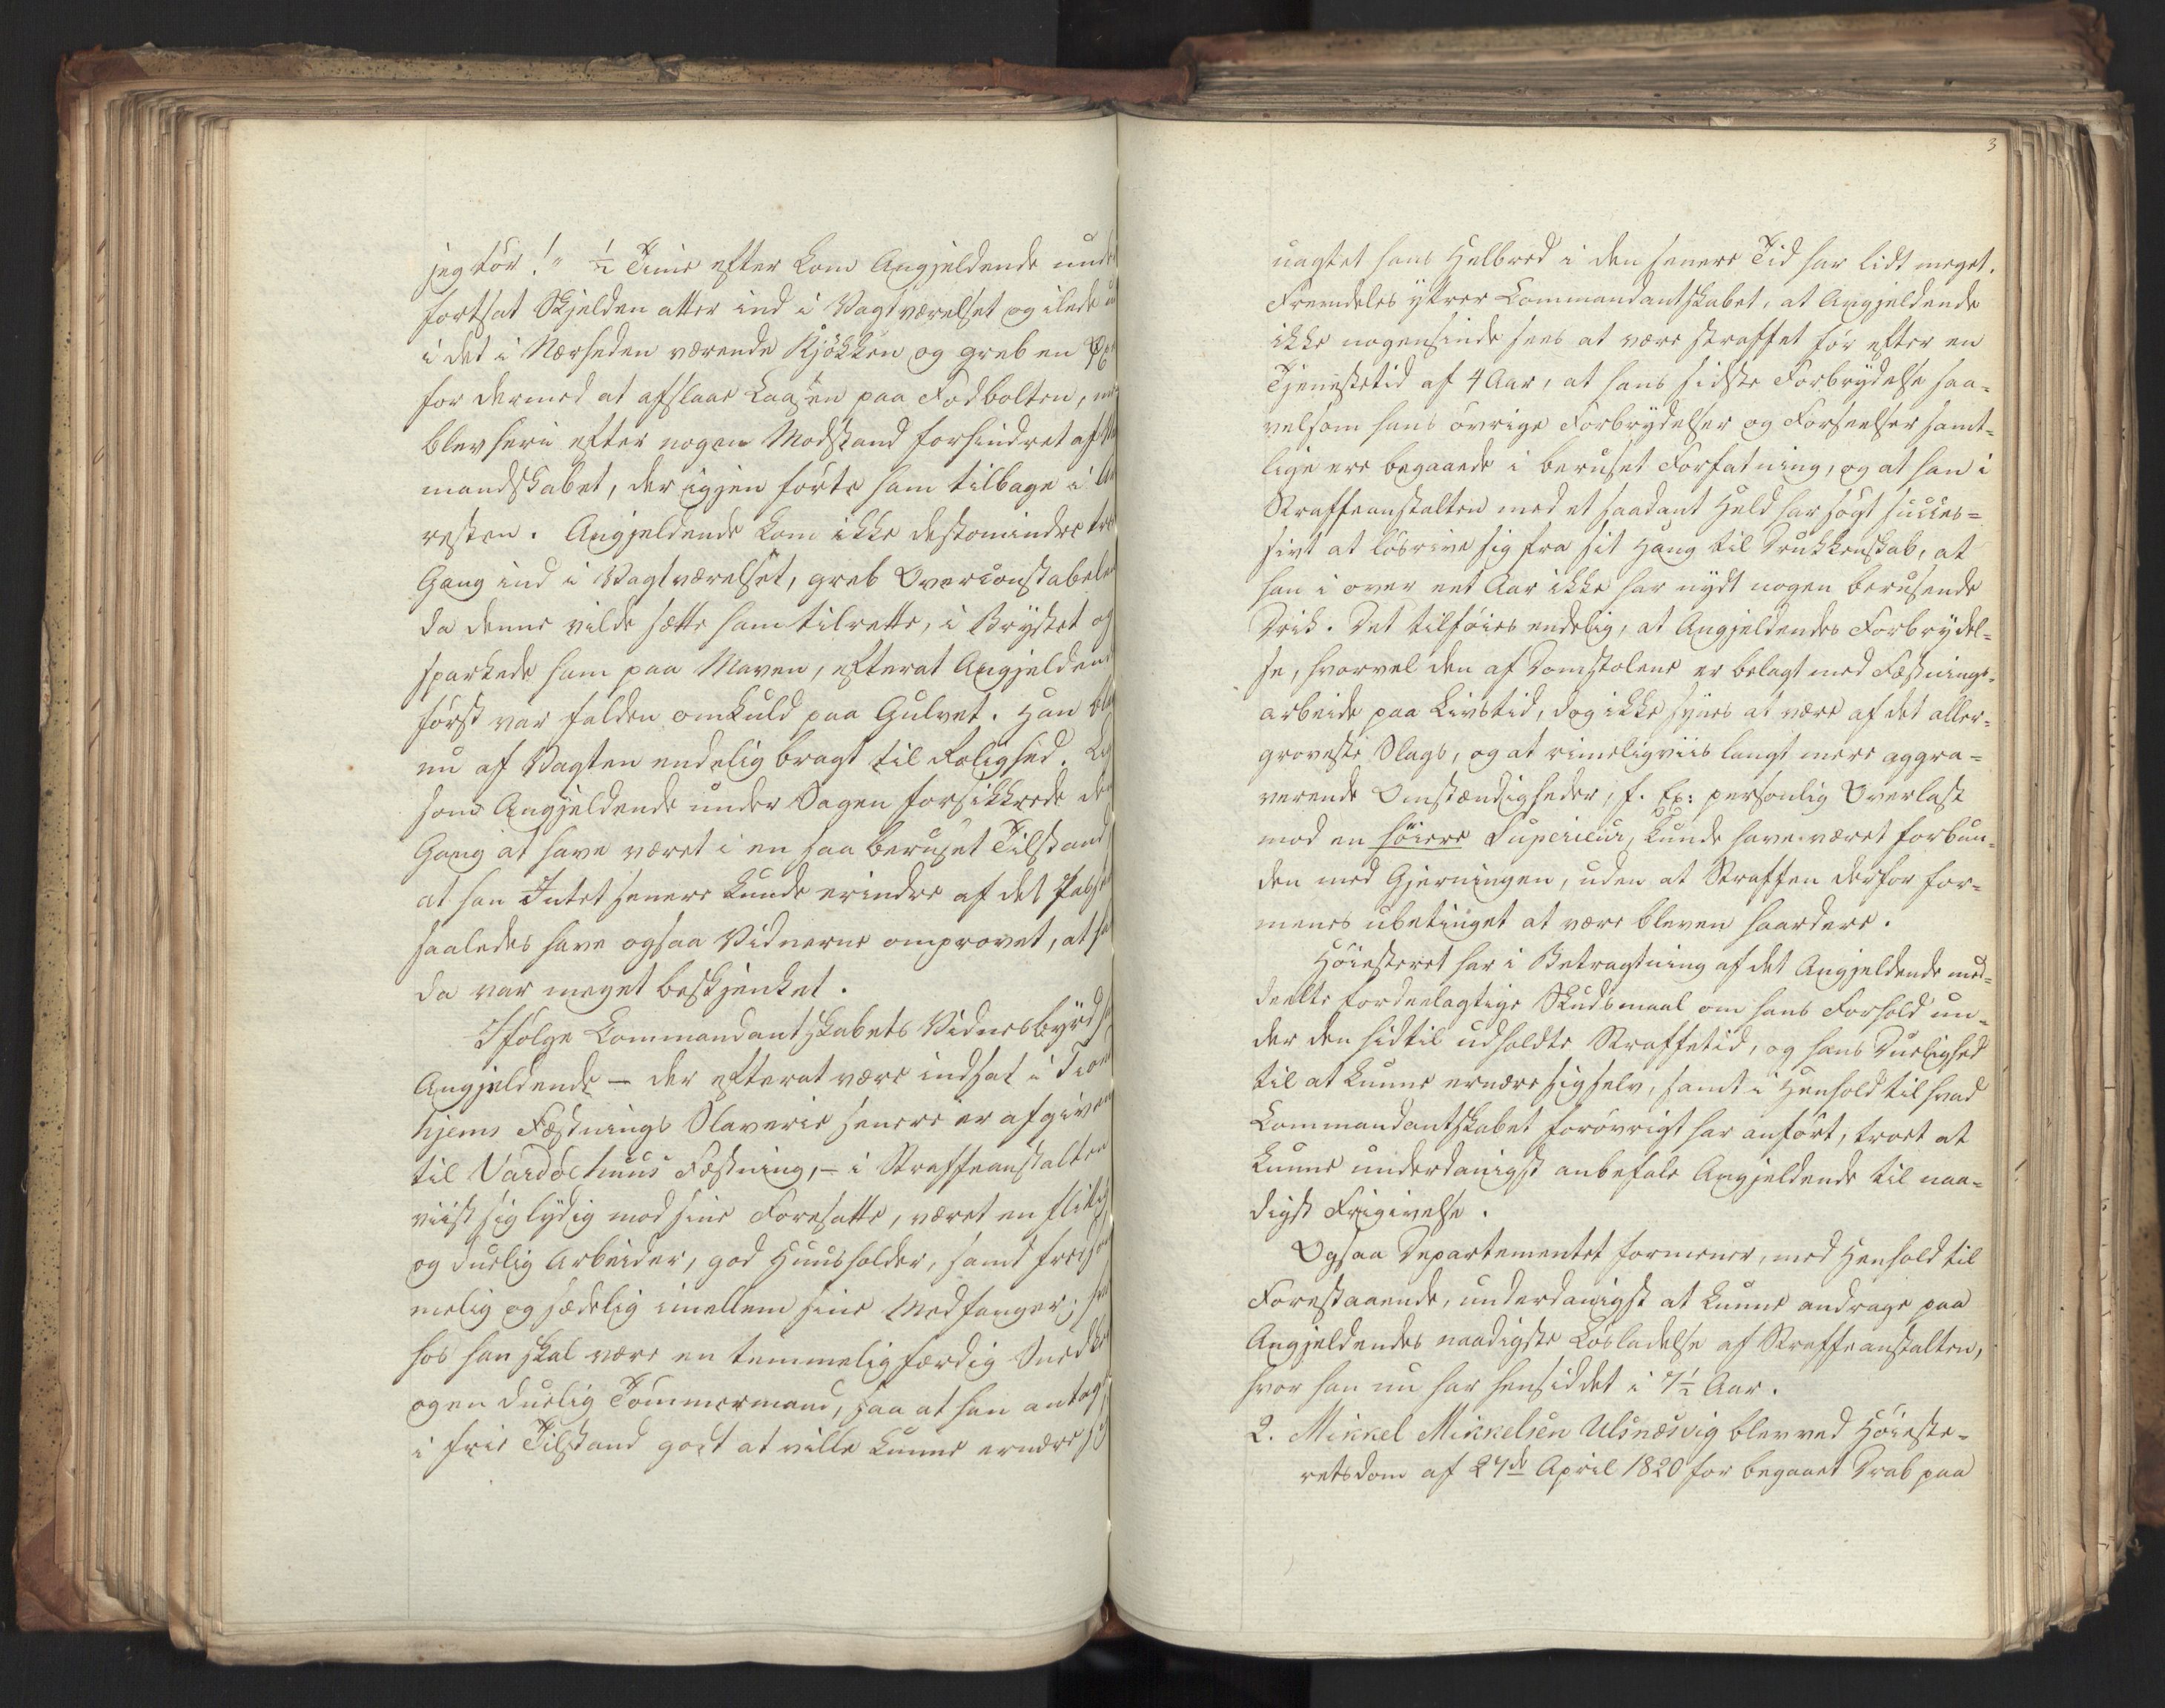 jeg tör!" ½ Time efter kom Angjeldende under
fortsat Skjelden atter ind i Vagtværelset og ilede
i det i Nærheden værende Kjökken og greb en Øxe
for dermed at afslaae Laasen paa Fodbolten, men
blev heri efter nogen Modstand forhindret af
mandskabet, der igjen förte ham tilbage i Ar
resten. Angjeldende kom ikke destomindre
Gang ind i Vagtværelset, greb Overconstabelen
da denne vilde sætte ham tilrette, i Brystet og
sparkede ham paa Maven, efterat Angjeldende
först var falden omkuld paa Gulvet. Han blev
nu af Vagten endelig bragt til Rolighed. Lige
som Angjeldende under Sagen forsikkrede den
Gang at have været i en saa beruset Tilstand
at han Intet senere kunde erindre af det Passe
saaledes have ogsaa Vidnerne omprovet, at han
da var meget beskjænket.
Ifölge Commandantskabets Vidnesbyrd har
Angjeldende – der efterat være indsat i Trond
hjems Fæstnings Slaverie senere er afgiven
til Vardöehuus Fæstning, – i Straffeanstalten
viist sig lydig mod sine Foresatte, været en flittig
og duelig Arbeider, god Huusholder, samt fredsom
melig og sædelig imellem sine Medfanger; hvor
hos han skal være en temmelig færdig Snedker
og en duelig Tömmermand, saa at han antages
i frie Tilstand godt at ville kunne ernære sig
3
uagtet hans Helbred i den senere Tid har lidt meget.
Fremdeles yttrer Commandantskabet, at Angjeldende
ikke nogensinde sees at være straffet för efter en
Tjenestetid af 4 Aar, at hans sidste Forbrydelse saa-
velsom hans övrige Forbrydelser og Forseelser samt-
lige ere begaaede i beruset Forfatning, og at han i
Straffeanstalten med et saadant Held har sögt succes-
sivt at lösrive sig fra sit Hang til Drukkenskab, at
han i over eet Aar ikke har nydt nogen berusende
Drik. Det tilföies endelig, at Angjeldendes Forbrydel-
se, hvorvel den af Domstolene er belagt med Fæstnings-
arbeide paa Livstid, dog ikke synes at være af det aller-
groveste Slags, og at rimeligviis langt mere aggra-
verende Omstændigheder, f. Ex: personlig Overlast
mod en höiere Superieur, kunde have været forbun-
den med Gjerningen, uden at Straffen derfor for-
menes ubetinget at være bleven haardere.
Höiesteret har i Betragtning af det Angjeldende med-
deelte fordeelagtige Skudsmaal om hans Forhold un-
der den hidtil udholdte Straffetid, og hans Duelighed
til at kunne ernære sig selv, samt i Henhold til hvad
Commandantskabet forövrigt har anfört, troet at
kunne underdanigst anbefale Angjeldende til naa-
digst Frigivelse.
Ogsaa Departementet formener, med Henhold til
Forestaaende, underdanigst at kunne andrage paa
Angjeldendes naadigste Lösladelse af Straffeanstalten,
hvor han nu har hensiddet i 7½ Aar.
2. Mikkel Mikkelsen Ulsnæsvig blev ved Höieste-
retsdom af 27de April 1820 for begaaet Drab paa